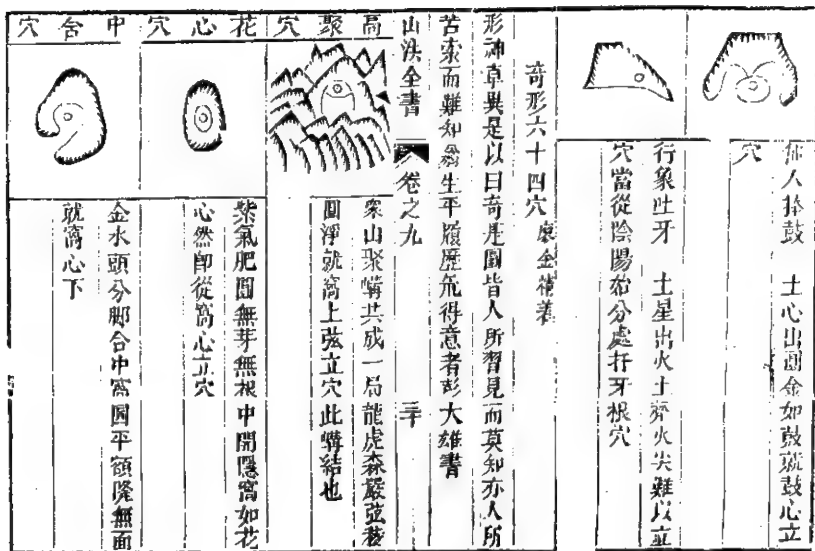 仙人捧鼓　土心出圓金如鼓就鼓心立
穴
行象吐牙　土星出火土齊火尖難以立
穴當從陰陽分處扦牙根穴
奇形六十四穴　廖金精著
形神卓異是以曰奇是圖皆人所習見而莫知亦人所
苦索而難知翁生平履歷凡得意者彭大雄書
山洪全書　卷之九　三十
高聚穴
衆山聚講共成一局龍虎森嚴弦稜
圓淨就窩上弦立穴此講結也
花心穴
紫氣肥圓無芽無根中開隱窩如花
心然卽從窩心立穴
中含穴
金水頭分腳合中窩圓平額隆無面
就窩心下